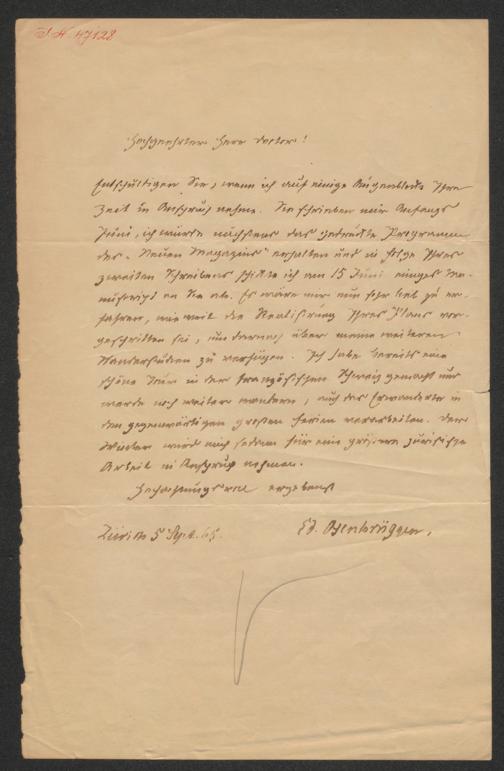 I. N. 47128
Hochgeehrter Herr Doctor!
Entschuldigen Sie, wenn ich auf einige Augenblicke Ihre
Zeit in Anspruch nehme. Sie schrieben mir Anfangs
Juni, ich würde nächstens das gedruckte Programm
des „Neuen Magazins" erhalten und in Folge Ihres
zweiten Schreibens schickte ich am 15 Juni einiges Ma-
nuscript an Sie ab. Es wäre mir nun sehr lieb zu er-
fahren, wie weit die Realisirung Ihres Plans vor-
geschritten sei, um darnach über meine weiteren
Wanderstudien zu verfügen. Ich habe bereits eine
schöne Tour in der französischen Schweiz gemacht und
werde noch weiter wandern, auch das Erwanderte in
den gegenwärtigen großen Ferien verarbeiten. Der
Winter wird mich sodann für eine größere juristische
Arbeit in Anspruch nehmen.
Hochachtungsvoll ergebenst
Zürich 5 Sept. 65.
Ed. Osenbrüggen.